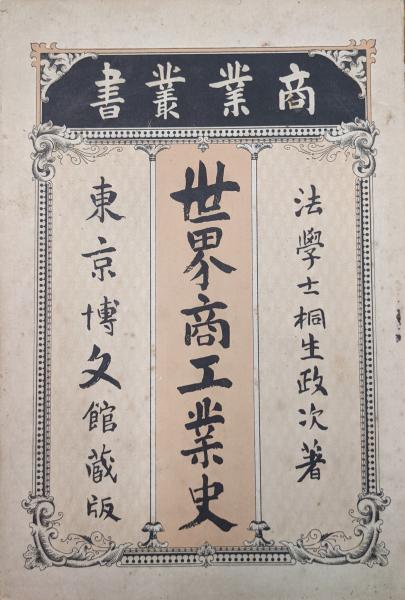 商業叢書
法學士桐生政次著
世界商工業史
東京博文館藏版